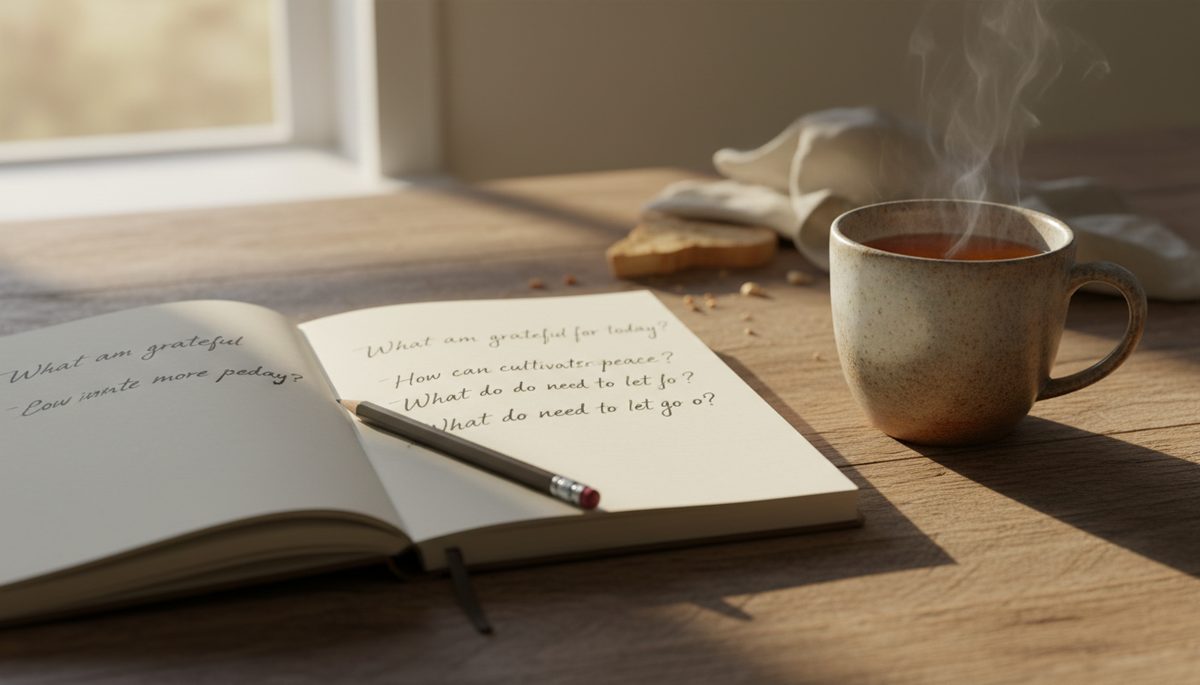 - What am grateful
- more peday?
- What am grateful for today?
- How can cultivater peace?
- What do do need to let fo?
What do need to let go o?